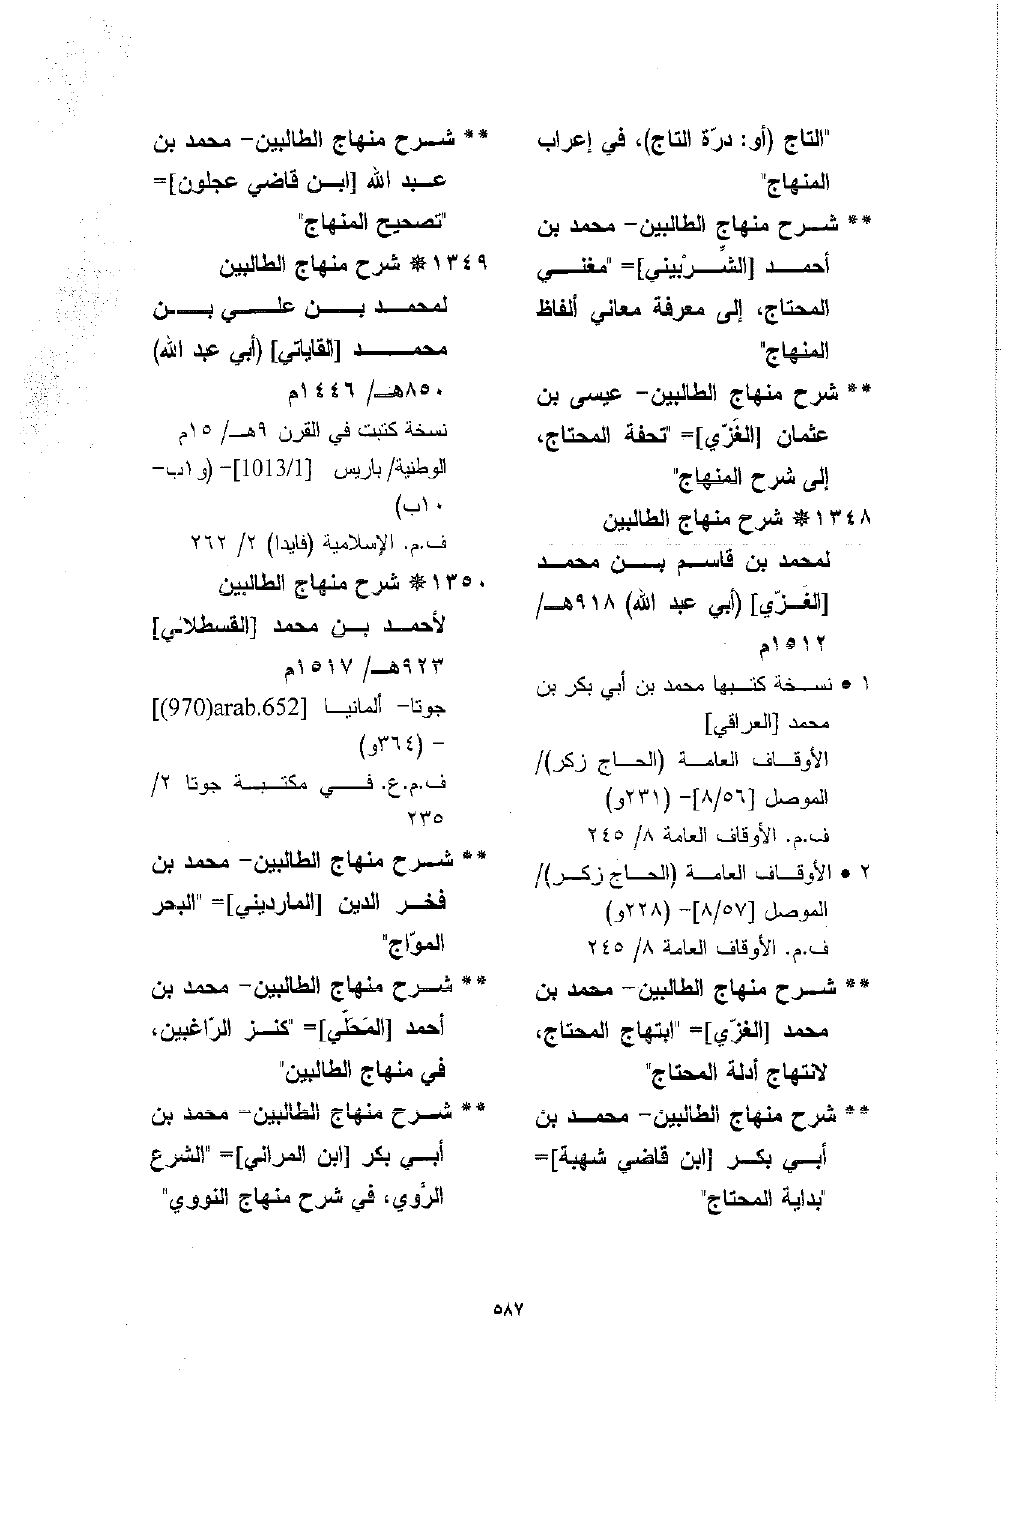 "التاج (أو: درّة التاج)، في إعراب
المنهاج"
** شرح منهاج الطالبين- محمد بن
أحمد [الشِّرْبيني]= "مغني
المحتاج، إلى معرفة معاني ألفاظ
المنهاج"
** شرح منهاج الطالبين- عيسى بن
عثمان [الغَزّي]= "تحفة المحتاج،
إلى شرح المنهاج"
١٣٤٨* شرح منهاج الطالبين
لمحمد بن قاسم بن محمد
[الغَزّي] (أبي عبد الله) ٩١٨هـ/
١٥١٢م
١ • نسخة كتبها محمد بن أبي بكر بن
محمد [العراقي]
الأوقاف العامة (الحاج زكر)/
الموصل [٨/٥٦]- (٢٣١و)
ف.م. الأوقاف العامة ٨/ ٢٤٥
٢ • الأوقاف العامة (الحاج زكر)/
الموصل [٨/٥٧]- (٢٢٨و)
ف.م. الأوقاف العامة ٨/ ٢٤٥
** شرح منهاج الطالبين- محمد بن
محمد [الغزّي]= "ابتهاج المحتاج،
لانتهاج أدلة المحتاج"
** شرح منهاج الطالبين- محمد بن
أبي بكر [ابن قاضي شهبة]=
"بداية المحتاج"
** شرح منهاج الطالبين- محمد بن
عبد الله [ابن قاضي عجلون]=
"تصحيح المنهاج"
١٣٤٩* شرح منهاج الطالبين
لمحمد بن علي بن
محمد [القاياتي] (أبي عبد الله)
٨٥٠هـ/ ١٤٤٦م
نسخة كتبت في القرن ٩هـ/ ١٥م
الوطنية/ باريس [1013/1]- (و١ب-
١٠ب)
ف.م. الإسلامية (فايدا) ٢/ ٢٦٢
١٣٥٠* شرح منهاج الطالبين
لأحمد بن محمد [القسطلاني]
٩٢٣هـ/ ١٥١٧م
جوتا- ألمانيا [arab.652(970)]
- (٣٦٤و)
ف.م.ع. في مكتبة جوتا ٢/
٢٣٥
** شرح منهاج الطالبين- محمد بن
فخر الدين [المارديني]= "البحر
الموّاج"
** شرح منهاج الطالبين- محمد بن
أحمد [المَحَلّي]= "كنز الرّاغبين،
في منهاج الطالبين"
** شرح منهاج الطالبين- محمد بن
أبي بكر [ابن المراني]= "الشرع
الرّوي، في شرح منهاج النووي"
٥٨٧